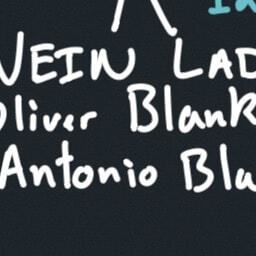 VEIN LAD
Oliver Blank
Antonio Bla